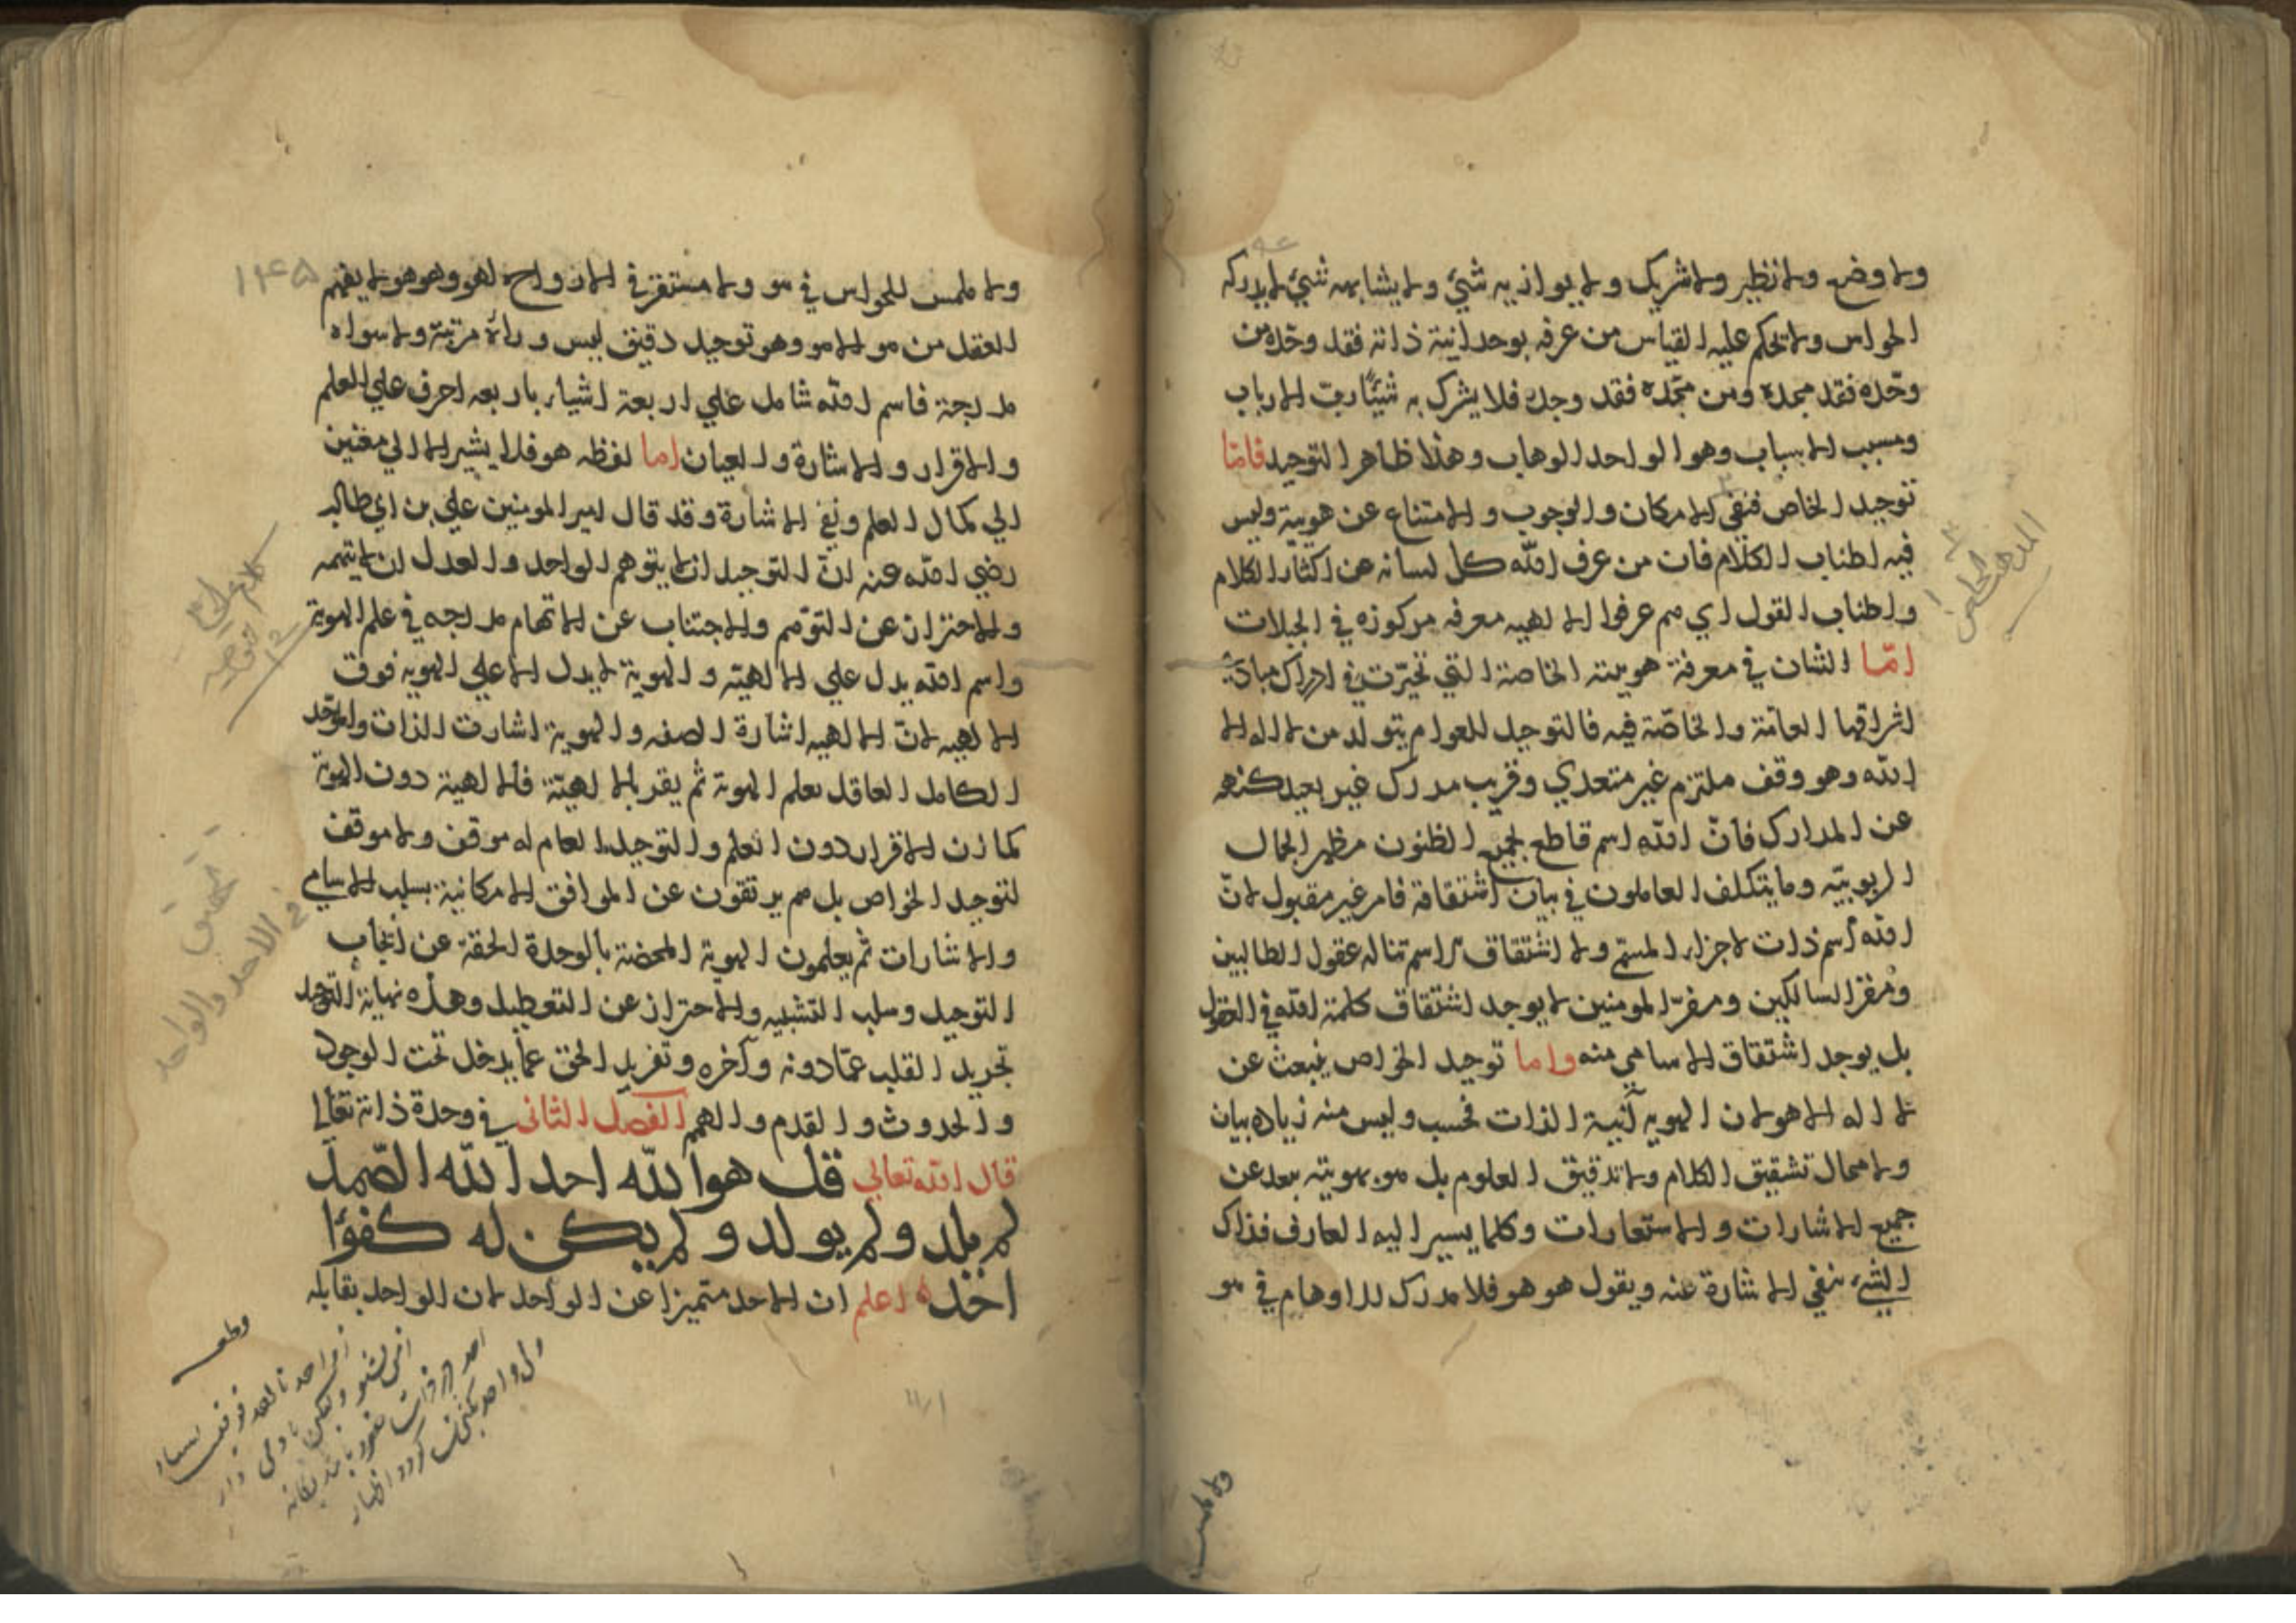 ولا وضع ولا نظير ولا شريك ولا يوازيه شيئ ولا يشابهه شيئ لا يدركه
الحواس ولا يحكم عليه القياس من عرفه بوحدانية ذاته فقد وحّده من
وحّده فقد مجده ومن مجّده فقد وجده فلا يشرك به شيئًا ربّ الارباب
ومسبب الاسباب وهو الواحد الوهاب وهذا ظاهر التوحيد فامّا
توحيد الخاص فنفي الامكان والوجوب والامتناع عن هويته وليس
فيه اطناب الكلام فان من عرف الله كلّ لسانه عن اكثار الكلام
واطناب القول اي هم عرفوا الالهيه معرفه مركوزه في الجبلات
امّا الشان في معرفة هويته الخاصة التي تحيّرت في ادراك مبادئ
اشراقها العامّة والخاصّة فيه فالتوحيد للعوام يتولد من لا اله الا
الله وهو وقف ملتزم غير متعدي وقريب مدرك غير بعيد كنهه
عن المدارك فانّ الله اسم قاطع لجميع الظنون مظهر الجمال
الربوبيّه وما يتكلف العاملون في بيان اشتقاقة فامر غير مقبول لانّ
الله اسم ذات لاجزاء المسمّي ولا اشتقاق لاسم تناله عقول الطالبين
ومقرّ السالكين ومفرّ المومنين لا يوجد اشتقاق كلمة الله في العقول
بل يوجد اشتقاق الاسامي منه واما توحيد الخواص ينبعث عن
لا اله الا هو لان الهويه آنية الذات فحسب وليس منه زياده بيان
ولا محال تشقيق الكلام ولا تدقيق العلوم بل هو بهويته بعد عن
جميع الاشارات والاستعارات وكلما يسير اليه العارف فذاك
الشيء نفي الاشارة عنه ويقول هو هو فلا مدرك للاوهام في هو
ولا ملمس
المذهب
ولا ملمس للحواس في هو ولا مستقر في الارواح لهو وهو هو لا يفهم
العقل من هو الا هو وهو توحيد دقيق ليس وراه مرتبة ولا سواه
مدرجة فاسم الله شامل علي اربعة اشياء باربعه احرف علي العلم
والاقرار والاشارة والعيان اما لفظه هو فلا يشير الا الي معنين
الي كمال العلم ونفي الاشارة وقد قال امير المومنين علي بن ابي طالب
رضي الله عنه انّ التوحيد ان لا يتوهم الواحد والعدل ان لا يتهمه
والاحتراز عن التوهّم والاجتناب عن الاتهام مدرجه في علم الهوية
واسم الله يدل علي الالهيّه والهوية لا يدل الا علي الهويه فوق
الالهيه لانّ الالهيه اشارة الصفه والهوية اشارت الذات والموحّد
الكامل العاقل يعلم الهوية ثم يقر بالالهيّة فالالهية دون الهوية
كما ان الاقرار دون العلم والتوحيد العام له موقن ولا موقف
لتوحيد الخواص بل هم يرتقون عن الموافق الامكانية بسلب الاسامي
والاشارات ثم يعلمون الهوية المحضة بالوحدة الحقة عن ايجاب
التوحيد وسلب التشبيه والاحتراز عن التعطيل وهذه نهاية التوحيد
تجريد القلب عمّا دونه وآخره وتفريد الحق عما يدخل تحت الوجود
والحدوث والقدم والهمم الفصل الثاني في وحدة ذاته تعالى
قال الله تعالي قل هو الله احد الله الصمد
لم يلد ولم يولد ولم يكن له كفوًا
احد اعلم ان الاحد متميزا عن الواحد لان الواحد يقابله
۱۴۵
كلام علي
تحقيق
في الاحد والواحد